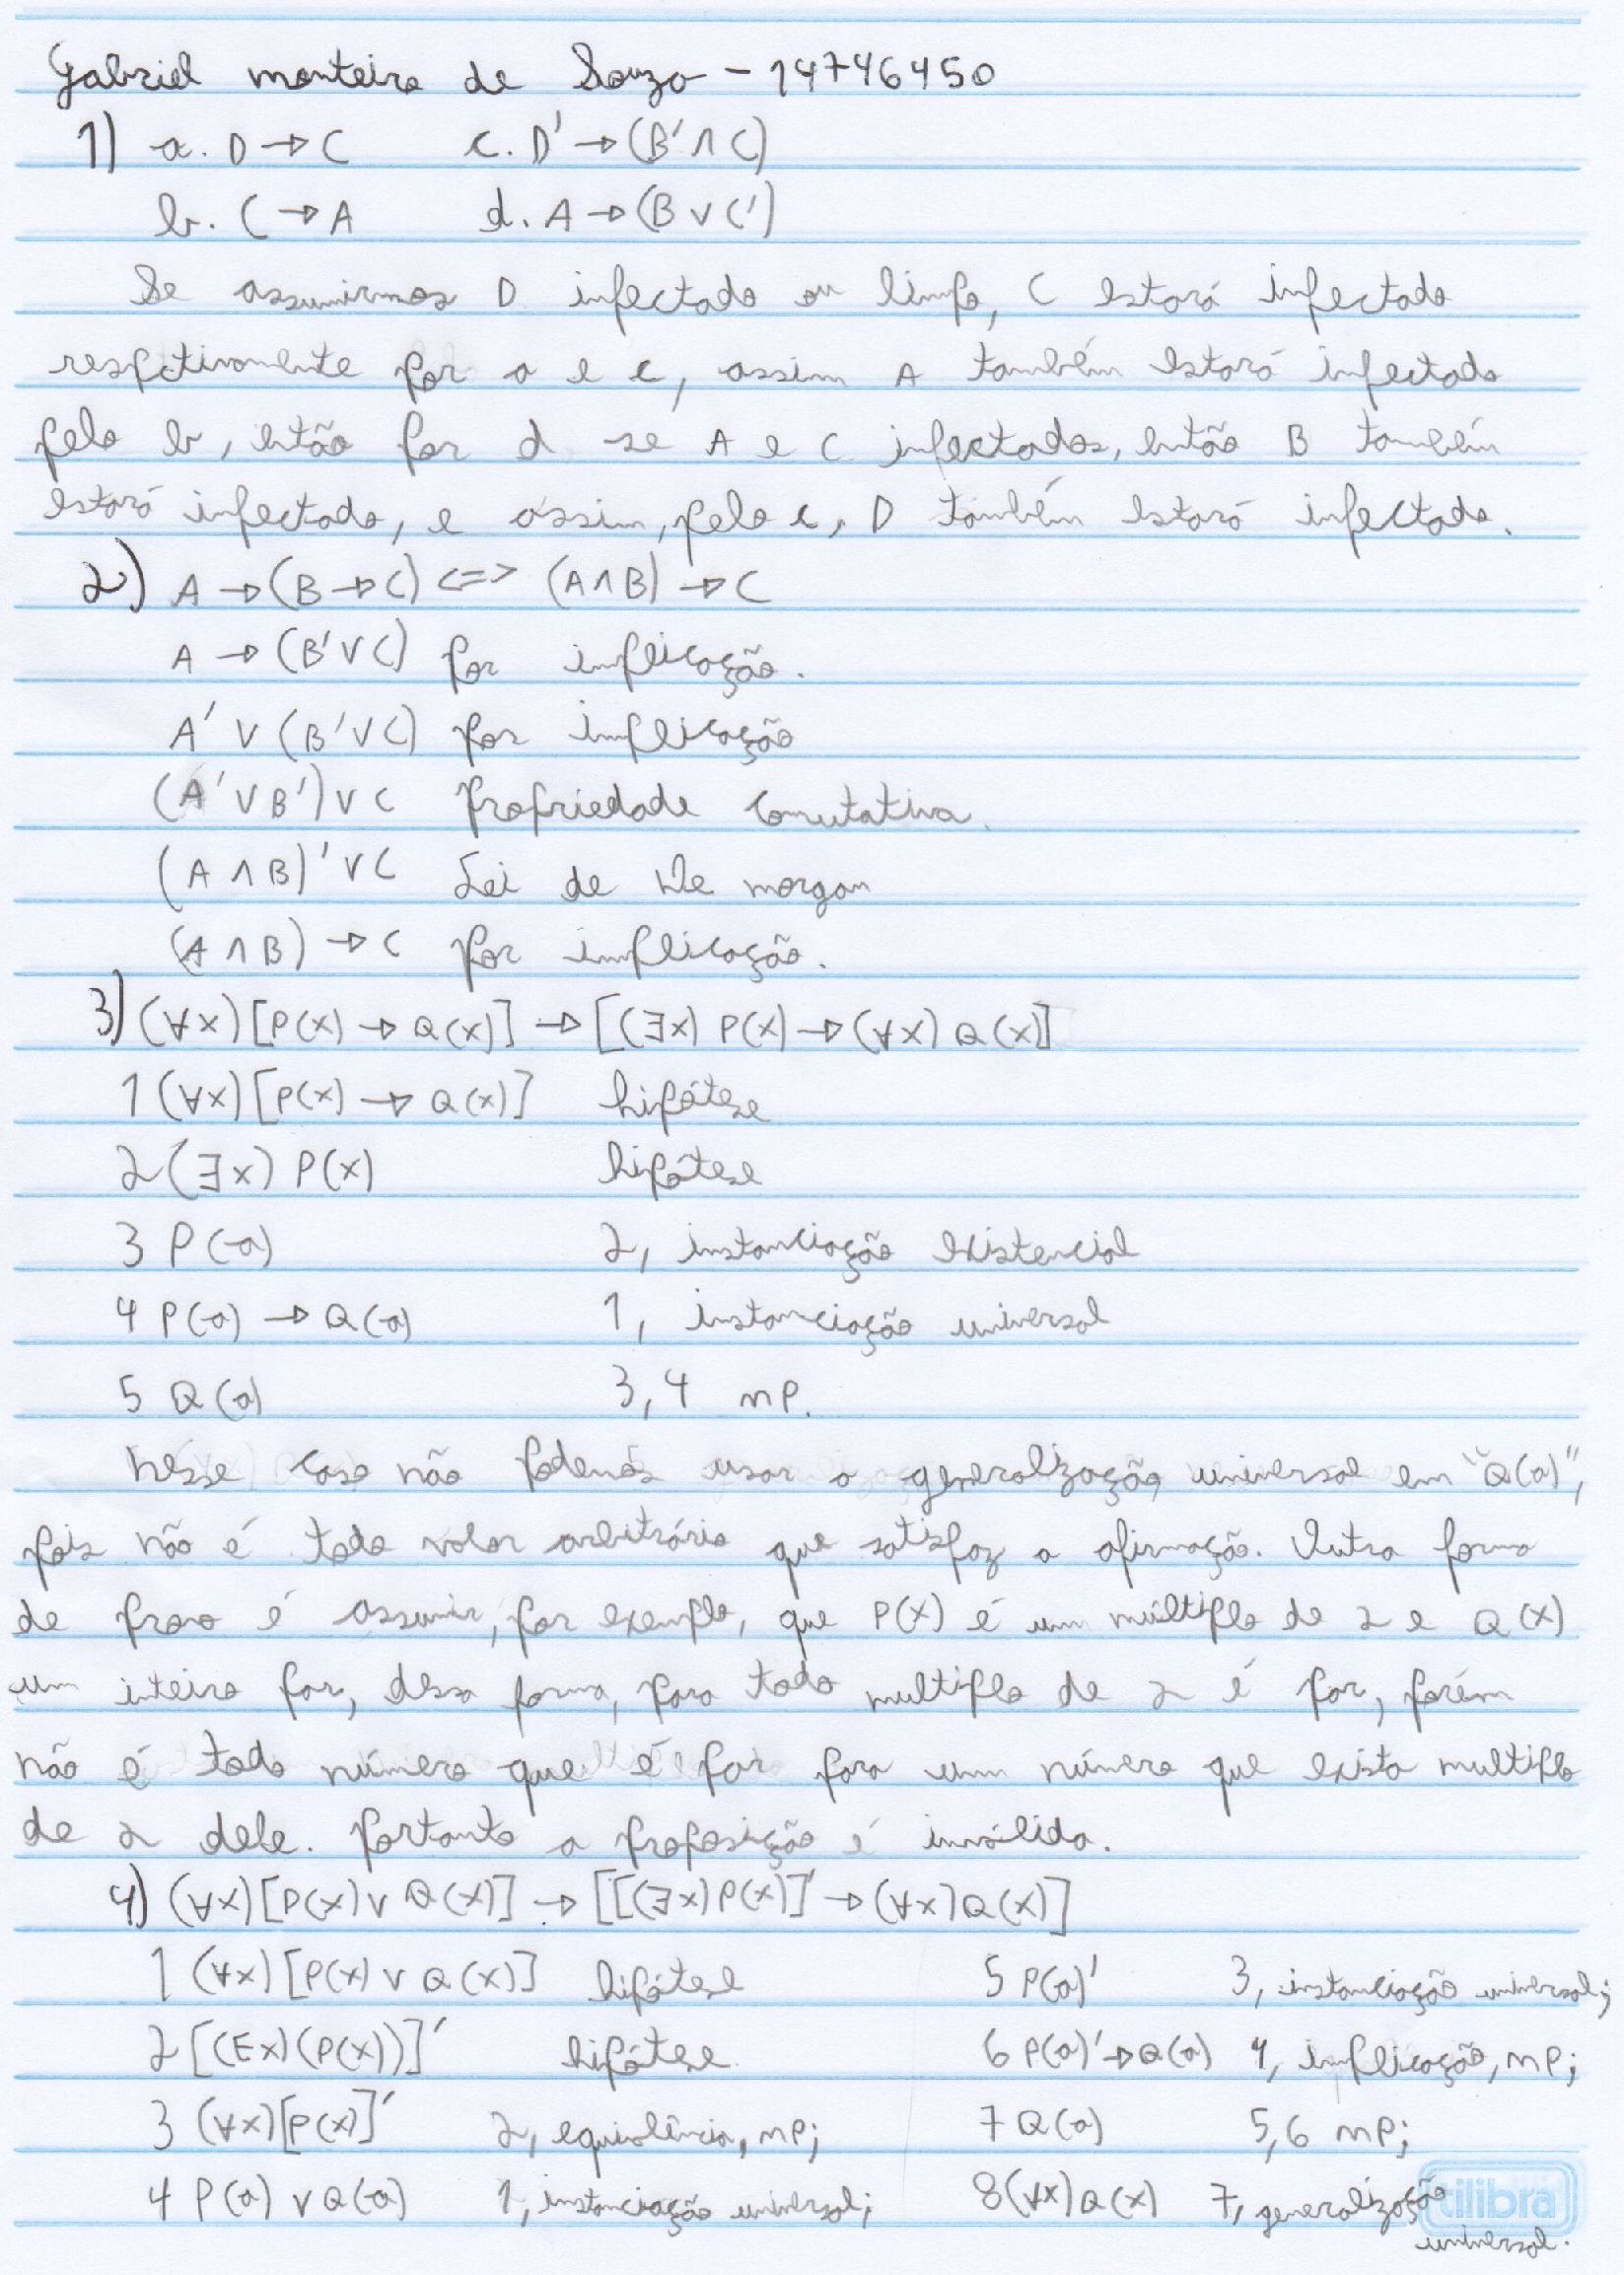 Gabriel monteiro de Souza - 14746450
1) a. D → C c. D' → (B' ∧ C)
b. C → A d. A → (B ∨ C')
Se assumirmos D infectado ou limpo, C estará infectado
respctivamente por a e c, assim A também estará infectado
pelo b, então por d se A e C infectados, então B também
estará infectado, e assim, pelo c, D também estará infectado.
2) A → (B → C) <=> (A ∧ B) → C
A → (B' ∨ C) por implicação.
A' ∨ (B' ∨ C) por implicação
(A' ∨ B') ∨ C Propriedade comutativa.
(A ∧ B)' ∨ C Lei de De morgan
(A ∧ B) → C por implicação.
3) (∀x)[P(x) → Q(x)] → [(∃x) P(x) → (∀x) Q(x)]
1 (∀x)[P(x) → Q(x)] hipótese
2 (∃x) P(x) hipótese
3 P(a) 2, instanciação existencial
4 P(a) → Q(a) 1, instanciação universal
5 Q(a) 3,4 mp.
Nesse caso não podemos usar a generalização universal em "Q(a)",
pois não é todo valor arbitrário que satisfaz a afirmação. Outra forma
de prova é assumir, por exemplo, que P(x) é um múltiplo de 2 e Q(x)
um inteiro par, dessa forma, para todo multiplo de 2 é par, porém
não é todo número que é par para um número que exista multiplo
de 2 dele. Portanto a proposição é inválida.
4) (∀x)[P(x) ∨ Q(x)] → [[(∃x)P(x)]' → (∀x)Q(x)]
1 (∀x)[P(x) ∨ Q(x)] hipótese 5 P(a)' 3, instanciação universal;
2 [(Ex)(P(x))]' hipótese 6 P(a)' → Q(a) 4, implicação, mp;
3 (∀x)[P(x)]' 2, equivalência, mp; 7 Q(a) 5,6 mp;
4 P(a) ∨ Q(a) 1, instanciação universal; 8 (∀x)Q(x) 7, generalização
universal.
tilibra